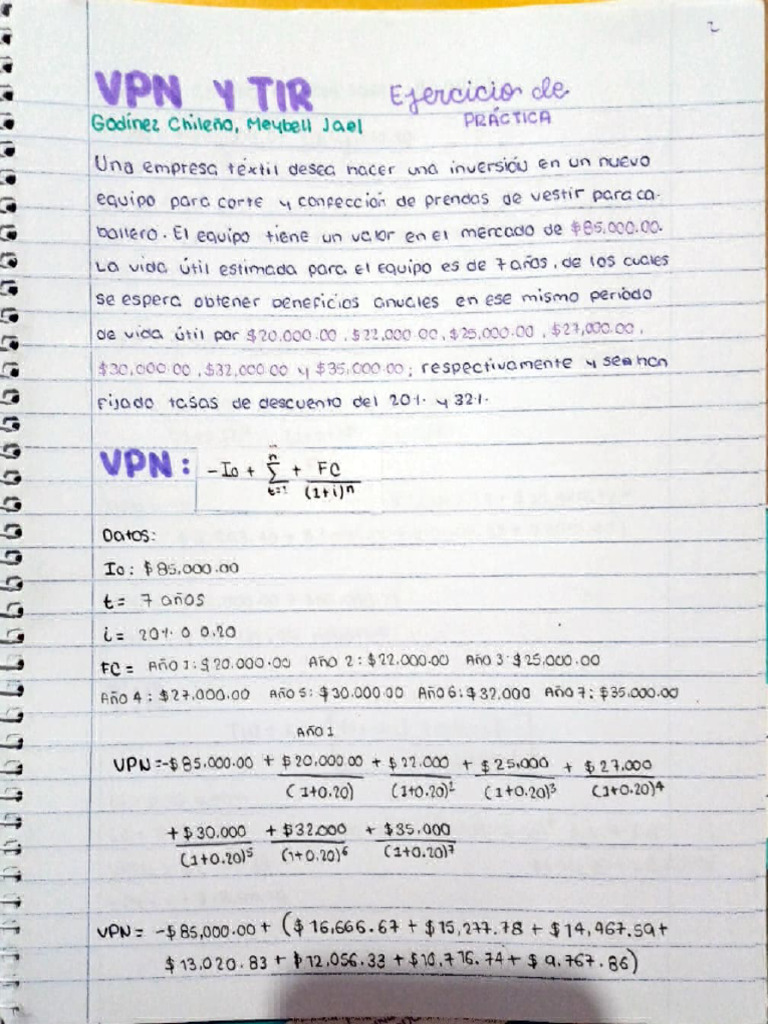 2
VPN Y TIR Ejercicio de
PRÁCTICA
Godínez Chileño, Meybell Jael
Una empresa textil desea hacer una inversión en un nuevo
equipo para corte y confección de prendas de vestir para ca-
ballero. El equipo tiene un valor en el mercado de $85,000.00.
La vida útil estimada para el equipo es de 7 años, de los cuales
se espera obtener beneficios anuales en ese mismo periodo
de vida útil por $20,000.00, $22,000.00, $25,000.00, $27,000.00,
$30,000.00, $32,000.00 y $35,000.00; respectivamente y se han
fijado tasas de descuento del 20% y 32%.
VPN: -Io + n∑t=1 + FC/(1+i)^n
Datos:
Io: $85,000.00
t= 7 años
i= 20% o 0.20
FC= Año 1: $20,000.00 Año 2: $22,000.00 Año 3: $25,000.00
Año 4: $27,000.00 Año 5: $30,000.00 Año 6: $32,000 Año 7: $35,000.00
Año 1
VPN=-$85,000.00 + $20,000.00/(1+0.20) + $22,000/(1+0.20)² + $25,000/(1+0.20)³ + $27,000/(1+0.20)⁴
+ $30,000/(1+0.20)⁵ + $32,000/(1+0.20)⁶ + $35,000/(1+0.20)⁷
VPN= -$85,000.00 + ($16,666.67 + $15,277.78 + $14,467.59 +
$13,020.83 + $12,056.33 + $10,716.74 + $9,767.86)